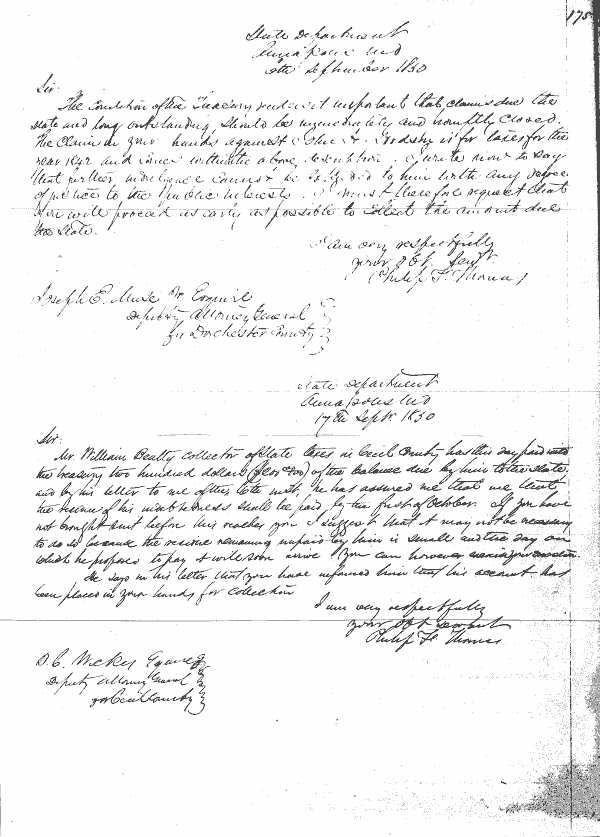 175
State Department
Annapolis Md
September 1850
Sir:
The condition of the Treasury renders it important that claims due the
State and long outstanding, should be immediately and promptly closed.
The Claim in your hands against is for taxes for the
year 1842 and comes within the above description. I write now to say
that further indulgence cannot be extended to him with any degree
of justice to the public interests. I must therefore request that
you will proceed as early as possible to collect the amount due
the State.
I am very respectfully
your obt. Servt.
(Philip F. Thomas)
Joseph E. Muse Jr Esquire
Deputy Attorney General
for Dorchester County
State Department
Annapolis Md
17th Sept. 1850
Sir:
Mr. William Beatty collector of State taxes in Cecil County has this day paid into
the treasury two hundred dollars ($200 00/100) of the balance due by him to the State.
and by his letter to me of the 16th inst, he has assured me that
the residue of his indebtedness shall be paid by the first of October. If you have
not brought suit before this reaches you I suggest that it may not be necessary
to do so because the residue remaining unpaid by him is small and the day on
which he proposes to pay it will soon arrive. You can however exercise your discretion.
He says in his letter that you have informed him that his account has
been placed in your hands for collection
I am very respectfully
your obt servant
Philip F. Thomas
D. C. Wickes Esquire
Deputy Attorney General
for Cecil County